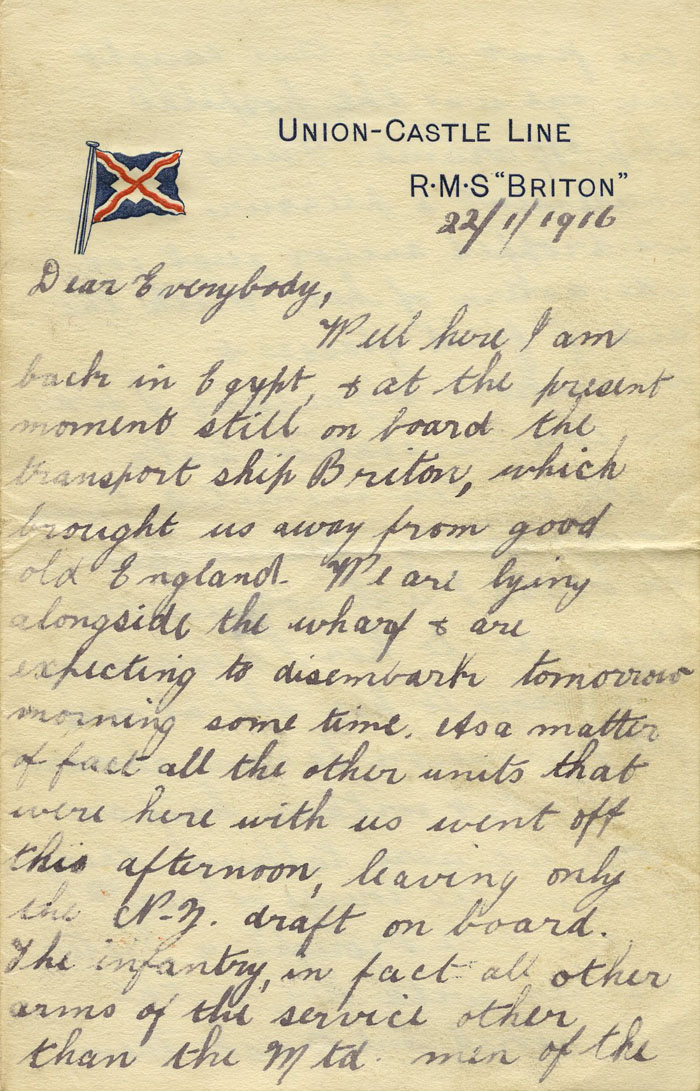 UNION-CASTLE LINE
R·M·S "BRITON"
22/1/1916
Dear Everybody,
Well here I am
back in Egypt, & at the present
moment still on board the
transport ship Briton, which
brought us away from good
old England. We are lying
alongside the wharf & are
expecting to disembark tomorrow
morning some time. As a matter
of fact all the other units that
were here with us went off
this afternoon, leaving only
the N-Z. draft on board.
The infantry, in fact all other
arms of the service other
than the Mtd. men of the